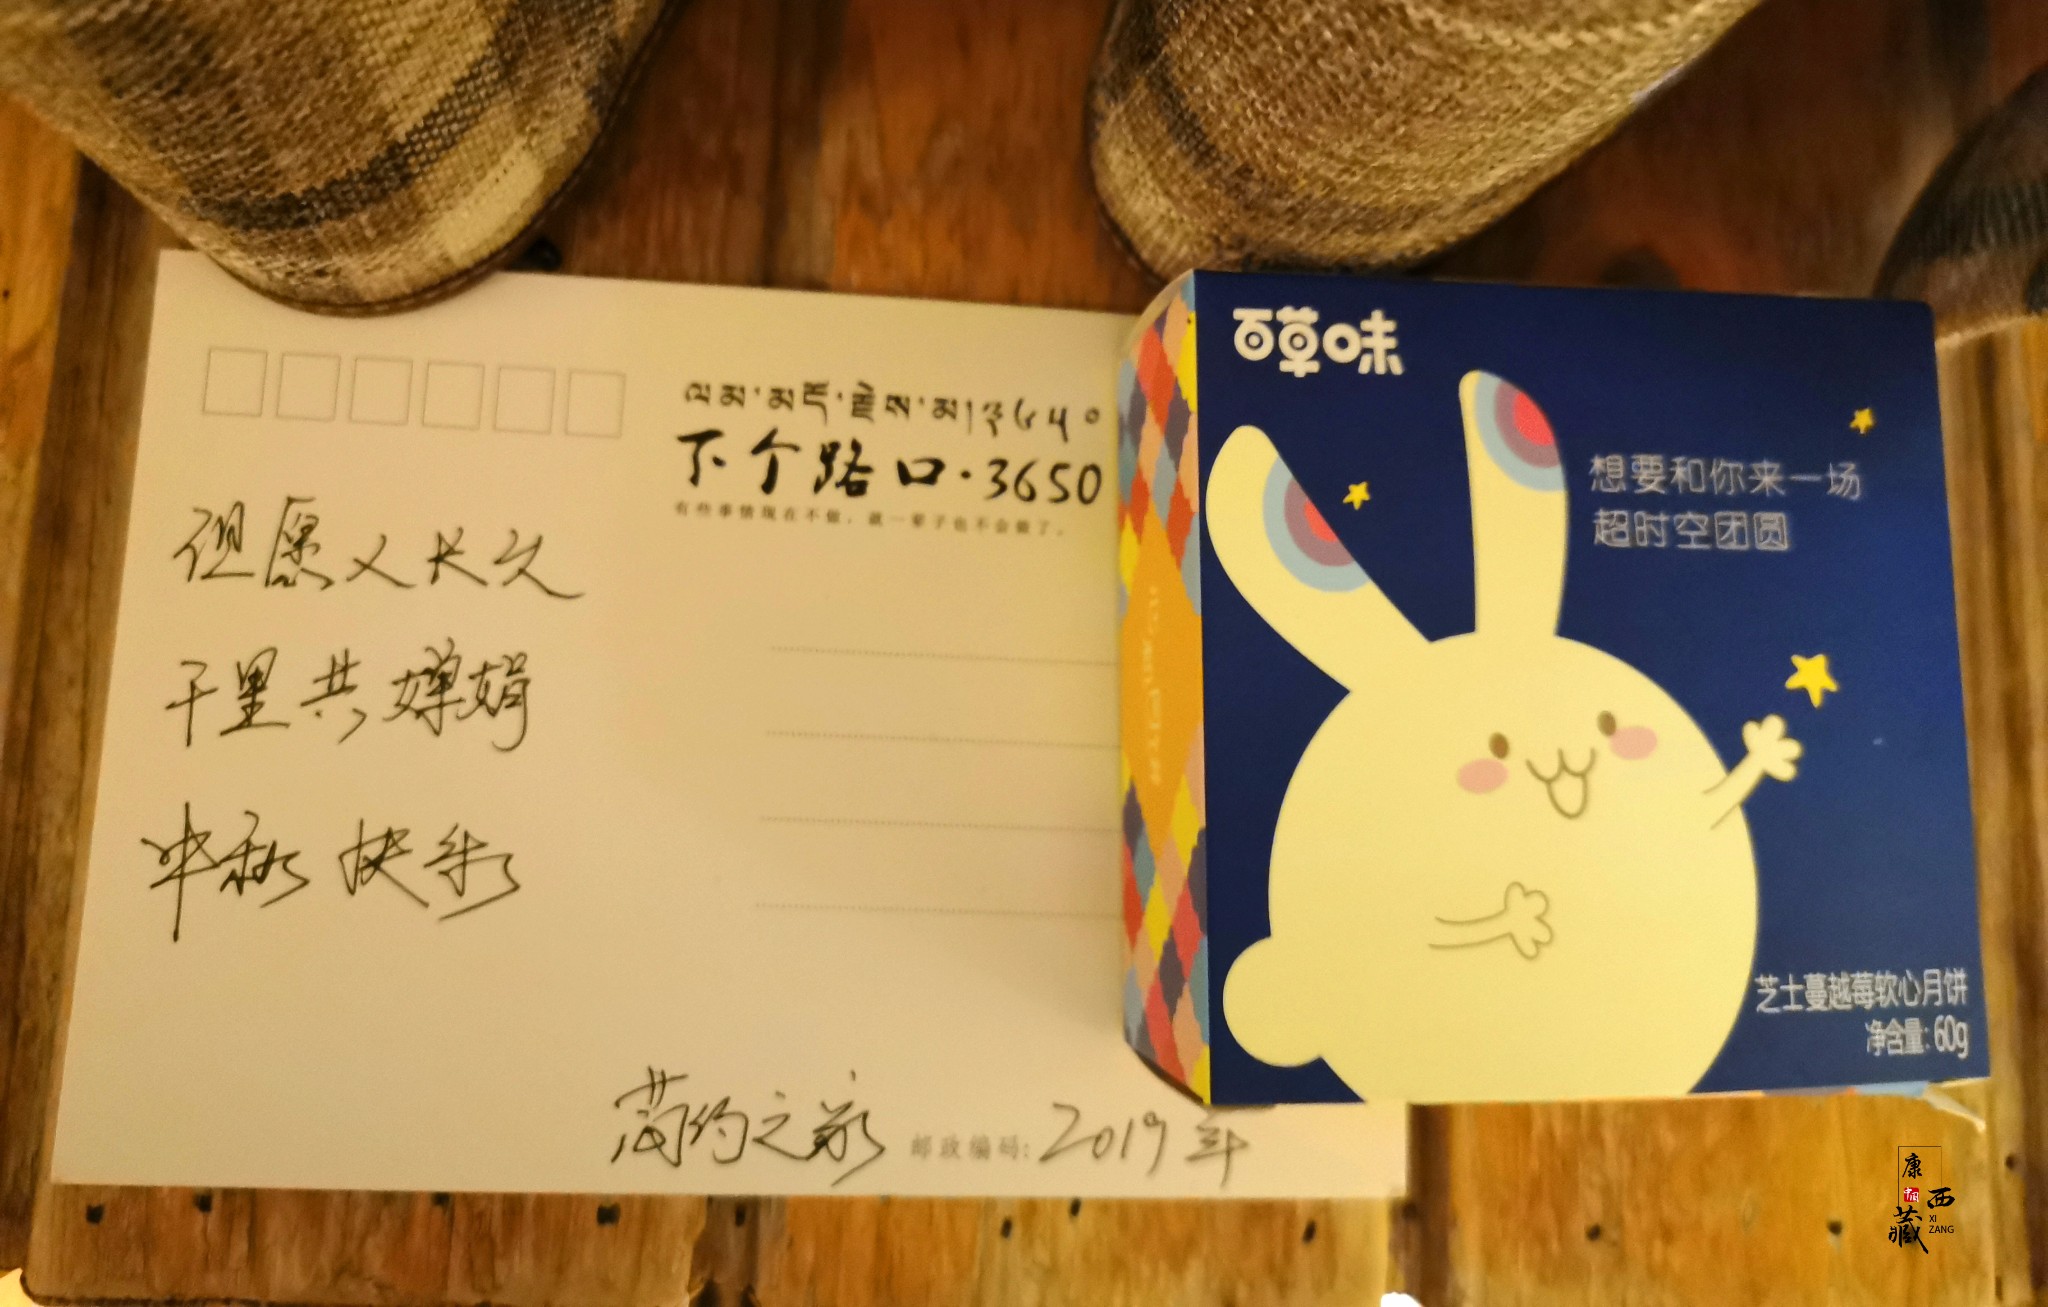 下个路口·3650
有些事情现在不做，就一辈子也不会做了。
但愿人长久
千里共婵娟
中秋 快乐
简约之家
邮政编码:
2019年
百草味
想要和你来一场
超时空团圆
芝士蔓越莓软心月饼
净含量: 60g
康
中国
西
藏
XI
ZANG